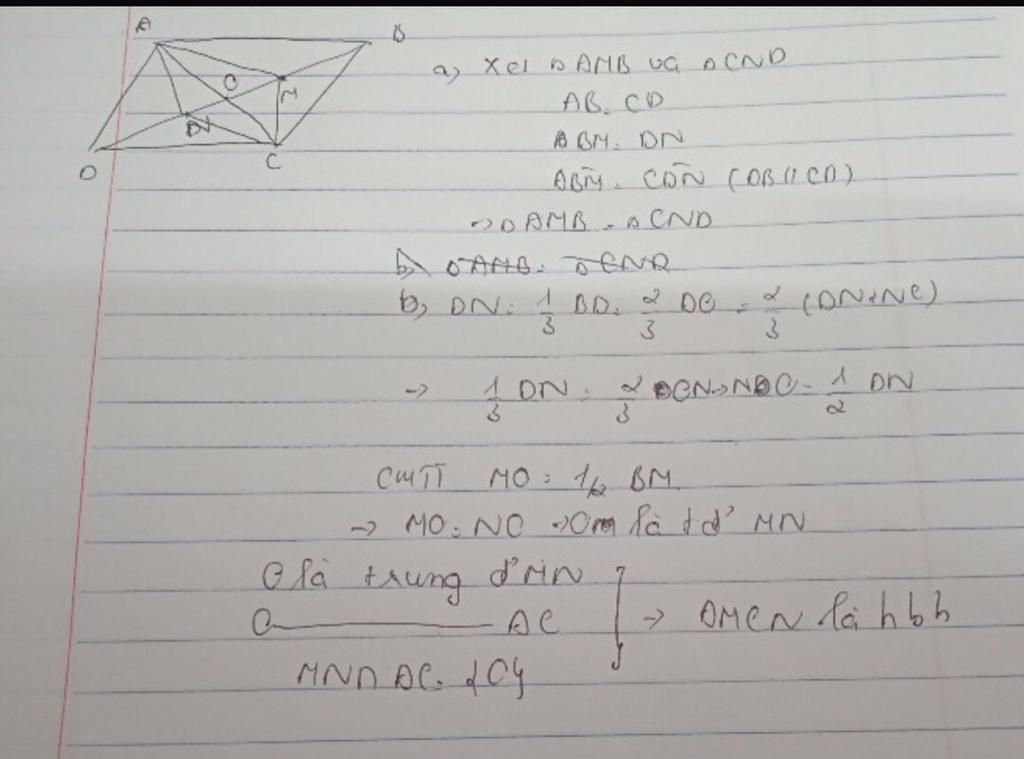 A B
O M
N
D C
a) Xét △AMB và △CND
AB = CD
BM = DN
ABM̂ = CDN̂ (AB // CD)
→ △AMB = △CND
b) △AMB = △CND
b) DN = 1/3 BD = 2/3 DO = 2/3 (DN + NO)
→ 1/3 DN = 2/3 ON → NO = 1/2 DN
CMTT MO = 1/2 BM
→ MO = NO → O là tđ' MN
O là trung đ' MN
O ——— AC → AMCN là hbh
MN ∩ AC = {O}